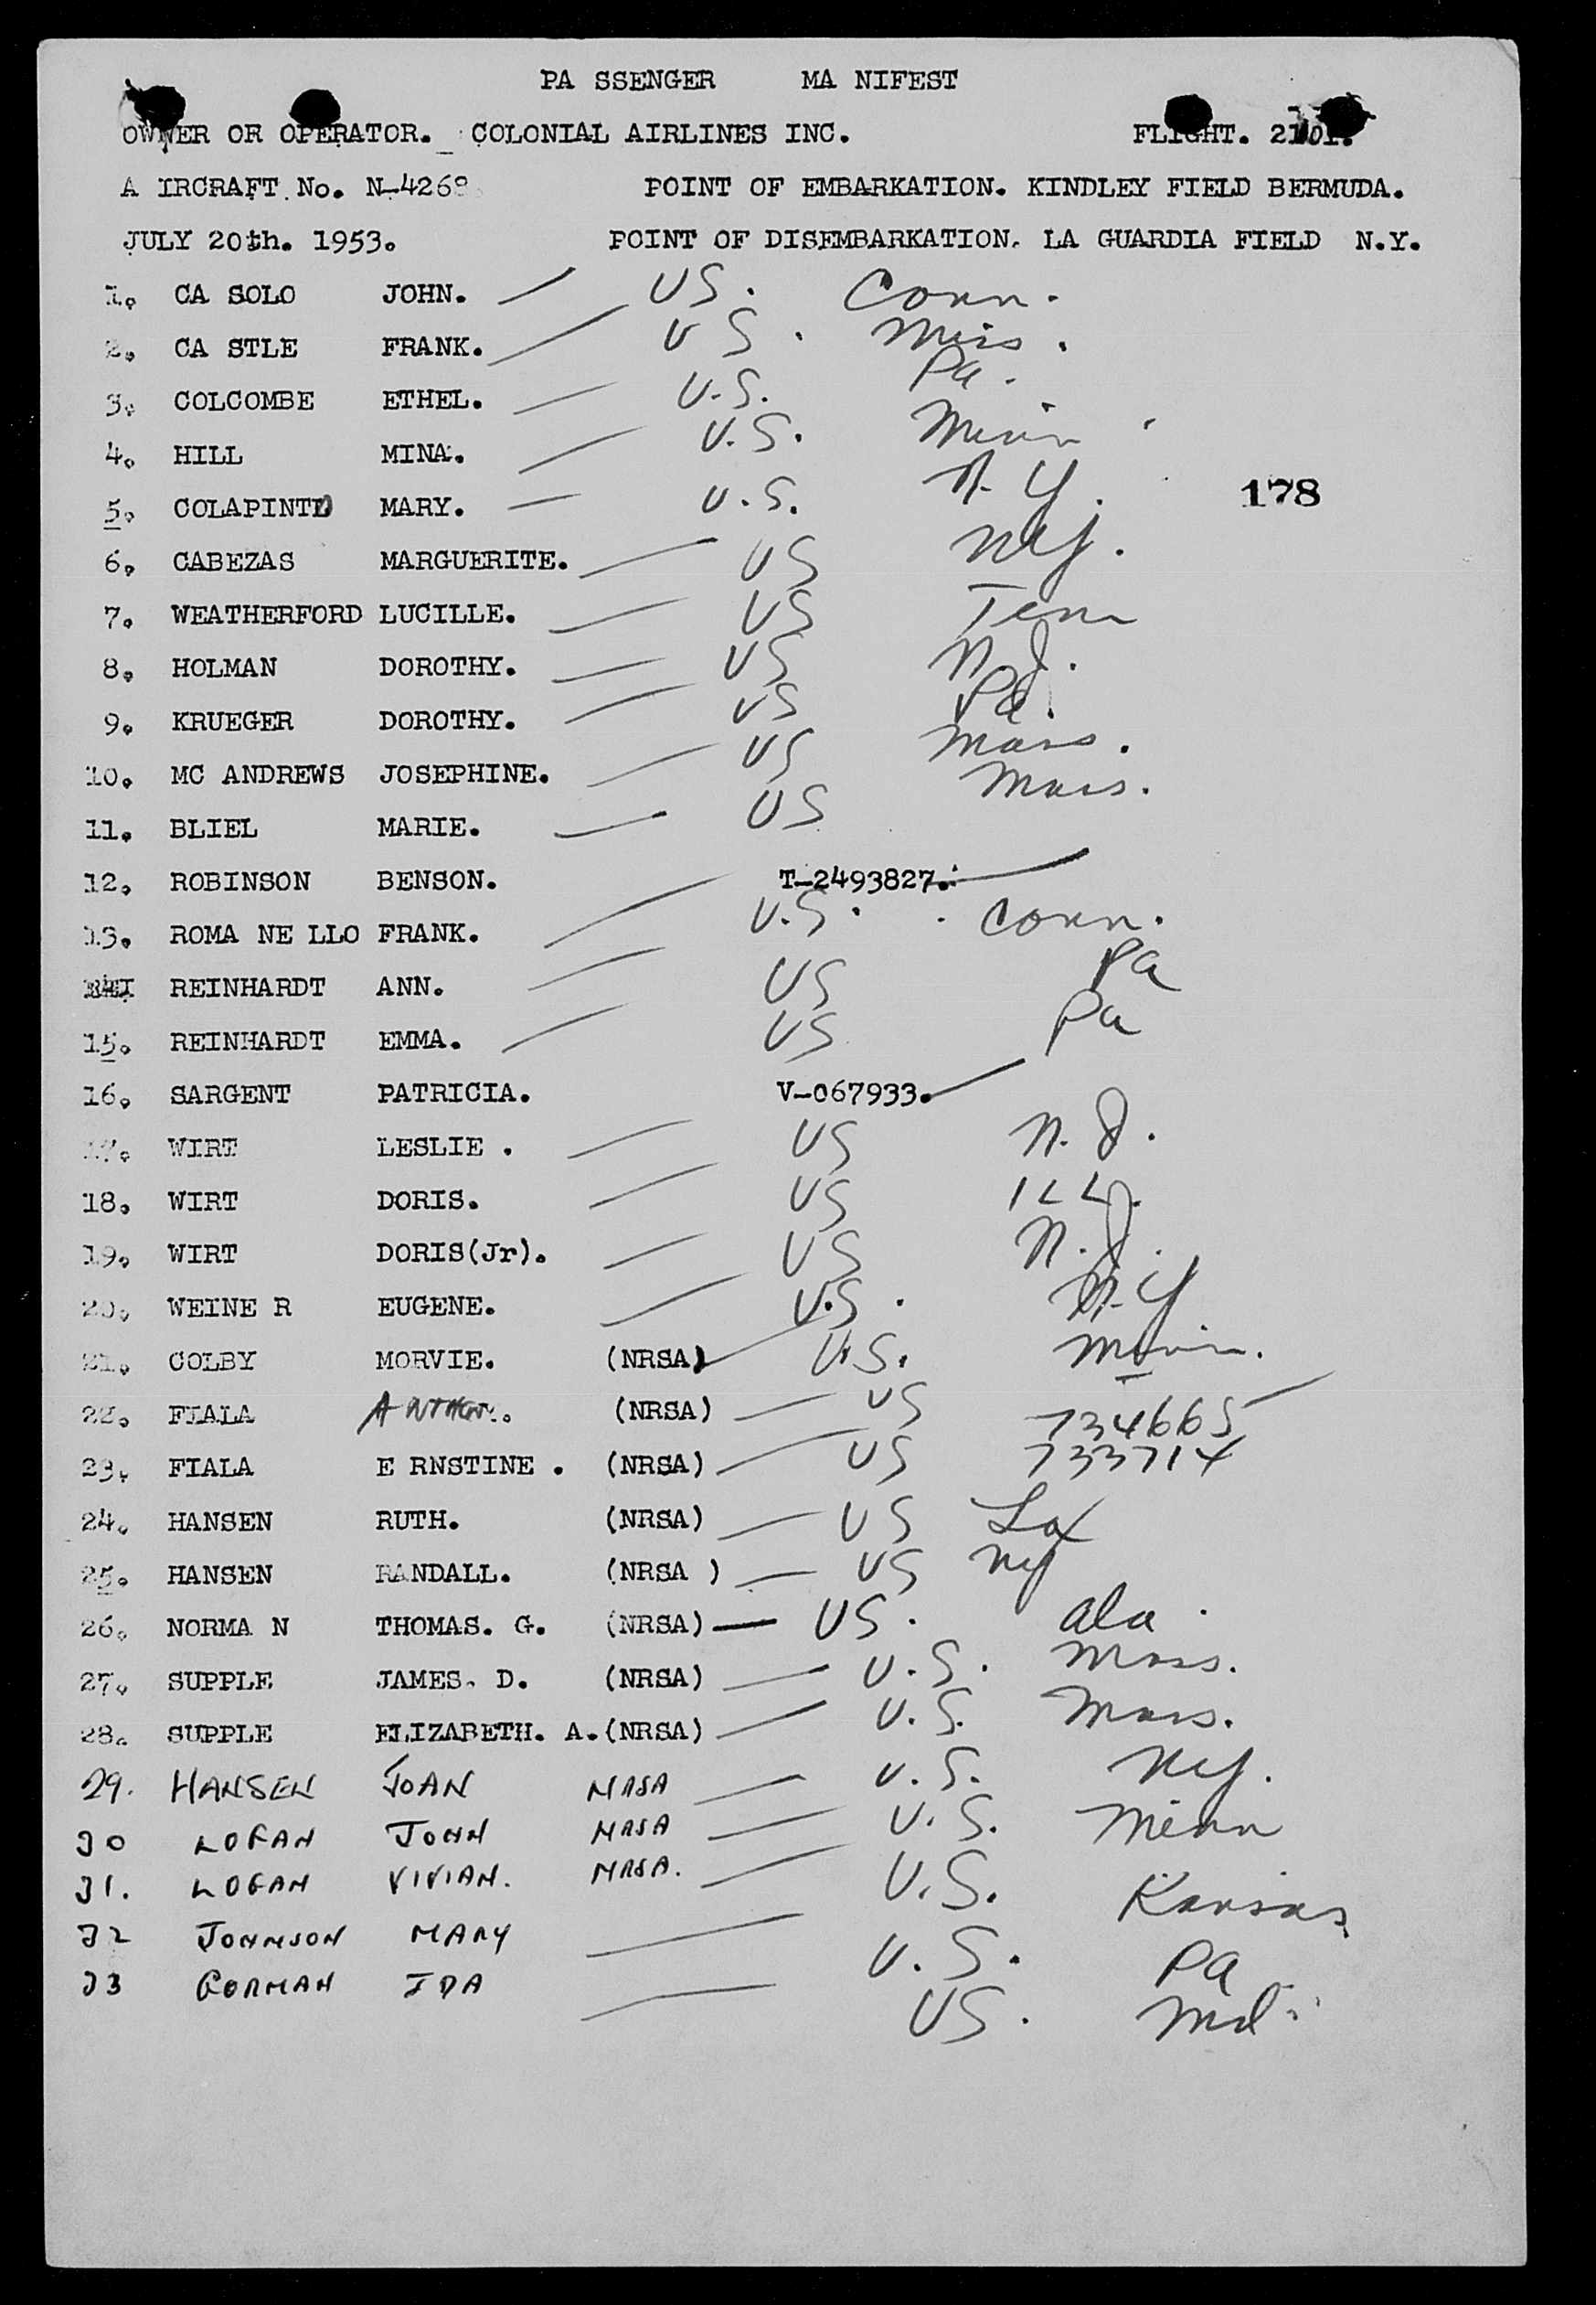 PA SSENGER MA NIFEST
OWNER OR OPERATOR. COLONIAL AIRLINES INC. FLIGHT.
A IRCRAFT No. N-4268 POINT OF EMBARKATION. KINDLEY FIELD BERMUDA.
JULY 20th. 1953. POINT OF DISEMBARKATION. LA GUARDIA FIELD N.Y.
1. CA SOLO JOHN. US. Conn.
2. CA STLE FRANK. US. Miss.
3. COLCOMBE ETHEL. U.S. Pa.
4. HILL MINA. U.S. Minn
5. COLAPINTO MARY. U.S. N.Y.
178
6. CABEZAS MARGUERITE. US NY.
7. WEATHERFORD LUCILLE. US Tenn
8. HOLMAN DOROTHY. US N.J.
9. KRUEGER DOROTHY. US Pa.
10. MC ANDREWS JOSEPHINE. US Mass.
11. BLIEL MARIE. US Mass.
12. ROBINSON BENSON. T-2493827.
13. ROMA NE LLO FRANK. U.S. Conn.
REINHARDT ANN. US Pa
15. REINHARDT EMMA. US Pa
16. SARGENT PATRICIA. V-067933.
17. WIRT LESLIE . US N.J.
18. WIRT DORIS. US ILL.
19. WIRT DORIS(Jr). US N.J.
20. WEINE R EUGENE. U.S. N.Y
21. COLBY MORVIE. (NRSA) U.S. Minn.
22. FIALA (NRSA) US 734665
23. FIALA E RNSTINE . (NRSA) US 733714
24. HANSEN RUTH. (NRSA) US La
25. HANSEN RANDALL. (NRSA ) US NY
26. NORMA N THOMAS. G. (NRSA) US. Ala.
27. SUPPLE JAMES. D. (NRSA) U.S. Mass.
28. SUPPLE ELIZABETH. A. (NRSA) U.S. Mass.
29. HANSEN JOAN NRSA U.S. NY.
30 LOGAN JOHN NRSA U.S. Minn
31. LOGAN VIVIAN. NRSA. U.S. Kansas
32 JOHNSON MARY U.S. Pa
33 GORMAN IDA US. Md.